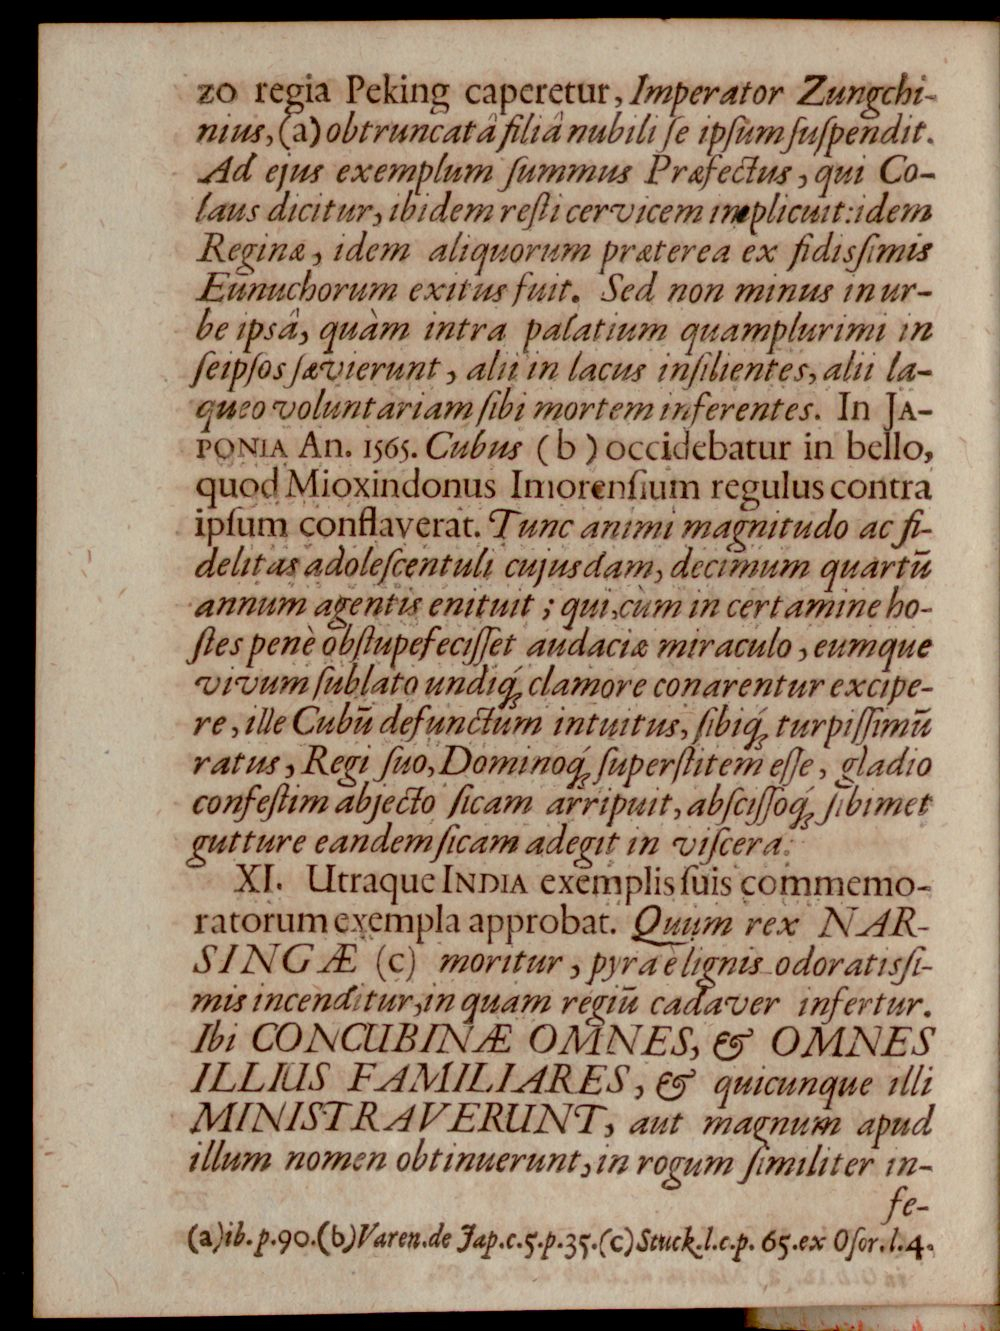 zo regia Peking caperetur, Imperator Zungchi-
nius, (a) obtruncatâ filiâ nubili ſe ipſum ſuſpendit.
Ad ejus exemplum ſummus Præfectus, qui Co-
laus dicitur, ibidem reſti cervicem implicuit: idem
Reginæ, idem aliquorum præterea ex fidisſimis
Eunuchorum exitus fuit. Sed non minus in ur-
be ipsâ, quàm intra palatium quamplurimi in
ſeipſos ſævierunt, alii in lacus inſilientes, alii la-
queo voluntariam ſibi mortem inferentes. In JA-
PONIA An. 1565. Cubus (b) occidebatur in bello,
quod Mioxindonus Imorenſium regulus contra
ipſum conflaverat. Tunc animi magnitudo ac fi-
delitas adoleſcentuli cujusdam, decimum quartū
annum agentis enituit; qui, cùm in certamine ho-
ſtes penè obſtupefeciſſet audaciæ miraculo, eumque
vivum ſublato undiq́; clamore conarentur excipe-
re, ille Cubū defunctum intuitus, ſibiq́; turpiſſimū
ratus, Regi ſuo, Dominoq́; ſuperſtitem eſſe, gladio
confeſtim abjecto ſicam arripuit, abſciſſoq́; ſibimet
gutture eandem ſicam adegit in viſcera.
XI. Utraque INDIA exemplis ſuis commemo-
ratorum exempla approbat. Quum rex NAR-
SINGÆ (c) moritur, pyra è lignis odoratisſi-
mis incenditur, in quam regiū cadaver infertur.
Ibi CONCUBINÆ OMNES, & OMNES
ILLIUS FAMILIARES, & quicunque illi
MINISTRAVERUNT, aut magnum apud
illum nomen obtinuerunt, in rogum ſimiliter in-
fe-
(a) ib. p. 90. (b) Varen. de Jap. c. 5. p. 35. (c) Stuck. l. c. p. 65. ex Oſor. l. 4.